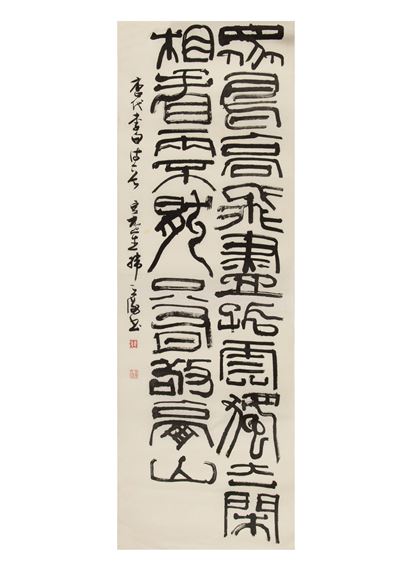 眾鳥高飛盡孤雲獨去閑
相看兩不厭只有敬亭山
唐代李白诗一首